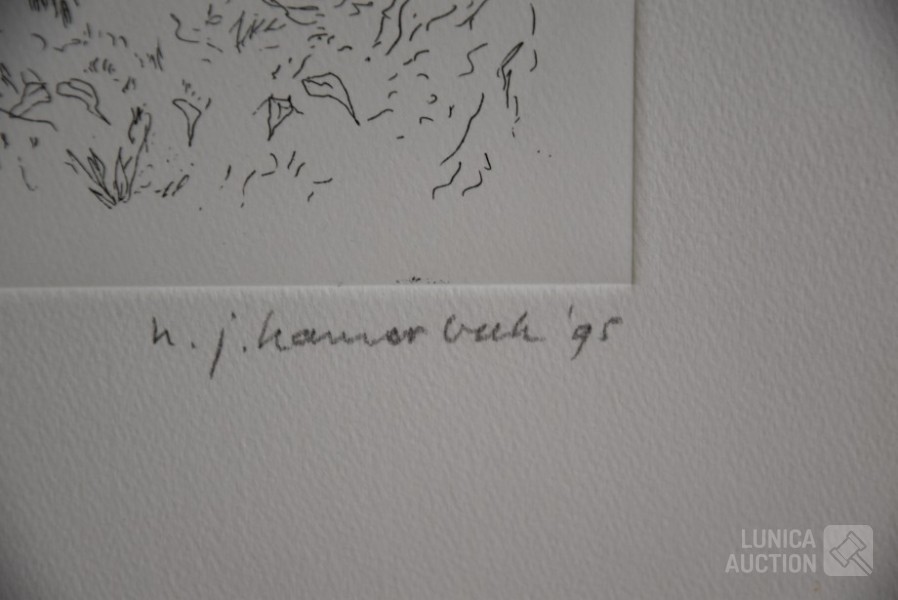 h. j. kamerbeek '95
LUNICA
AUCTION